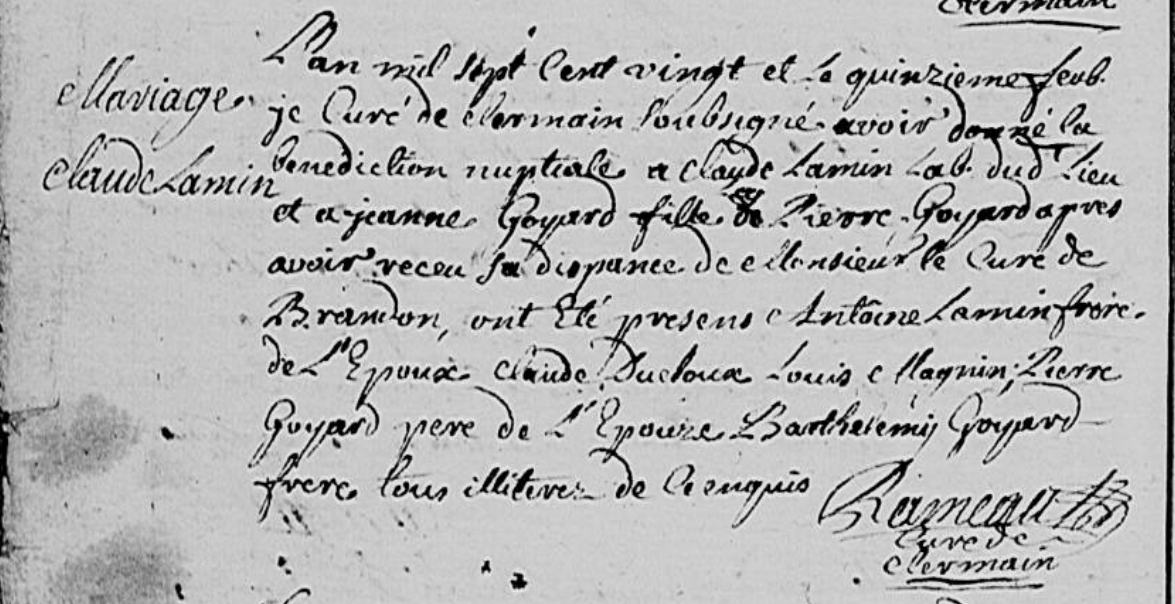 Clermain
L'an mil sept Cent vingt et le quinzieme feub.
Mariage
je Curé de Clermain soubsigné avoir donné la
Claude Lamin
benediction nuptiale a Claude Lamin Lab. dud. Lieu
et a jeanne Goyard fille de Pierre Goyard apres
avoir receu sa dispance de Monsieur le Curé de
Brandon, ont Eté presens Antoine Lamin frere
de L'Epoux Claude Ducloux Louis Magnin, Pierre
Goyard pere de L'Epouze Barthelemij Goyard
frere tous illiterez de Ce enquis
Rameau
Curé de
Clermain